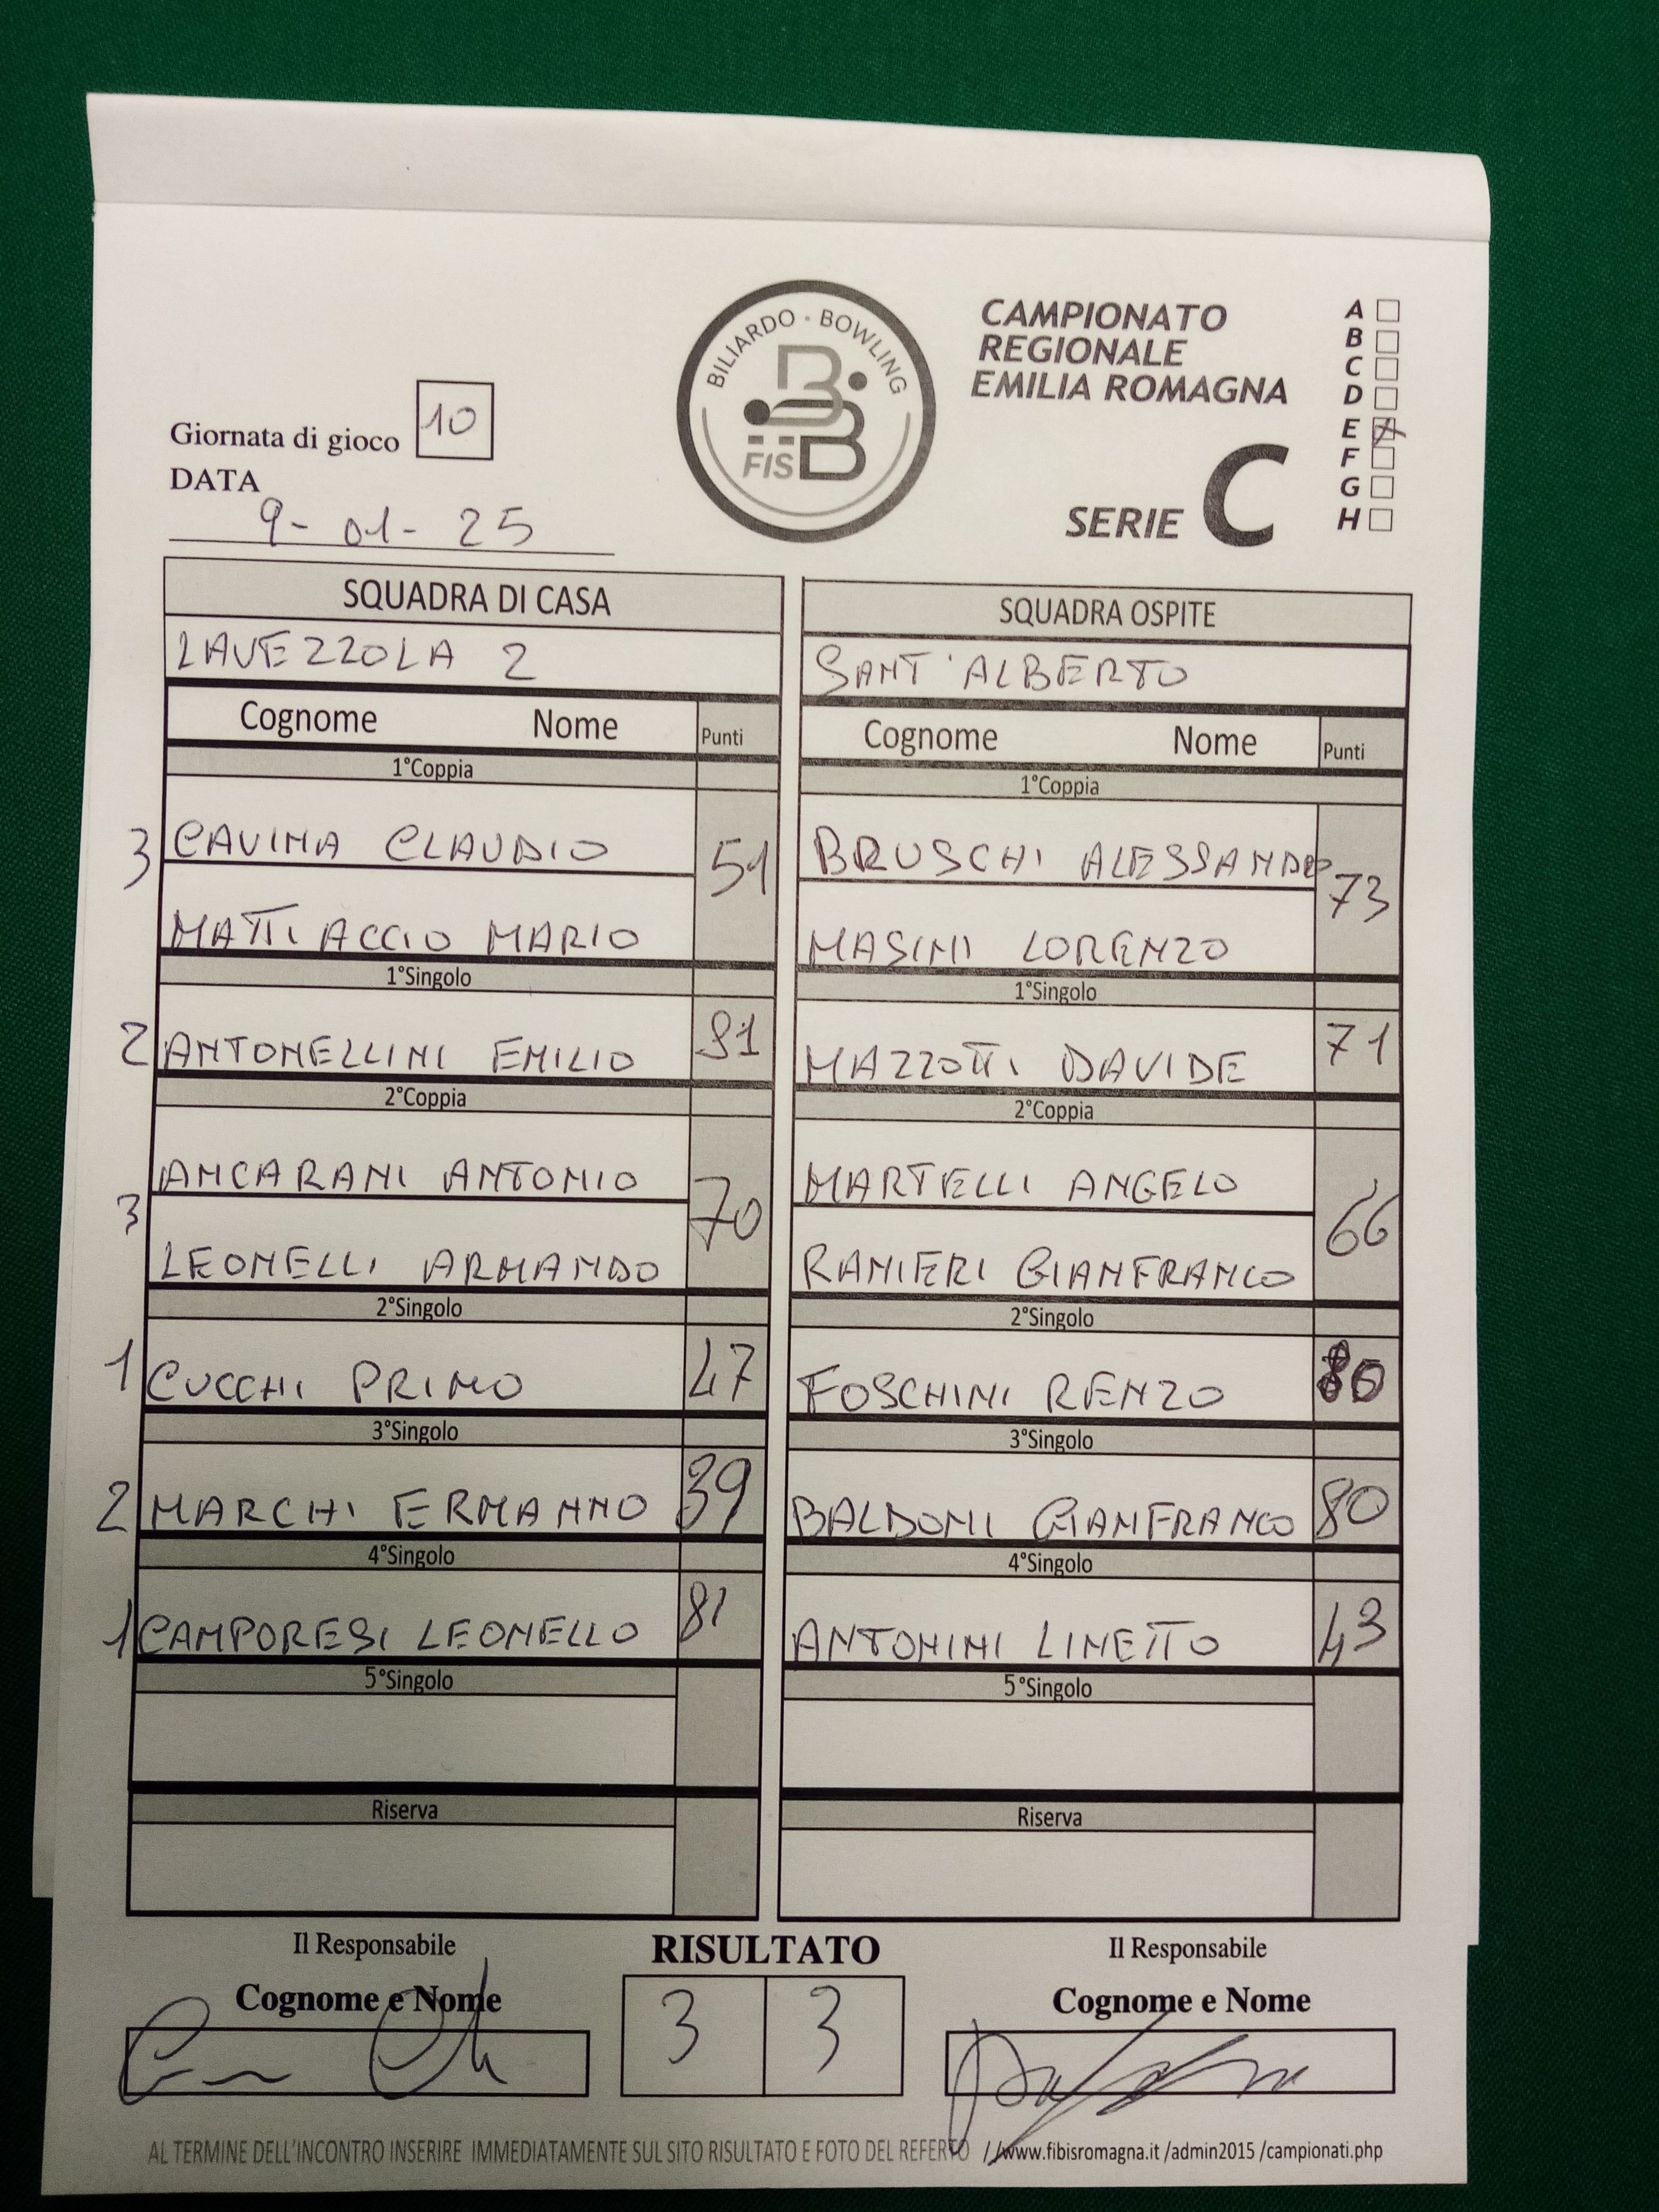 BILIARDO · BOWLING
FISBB
CAMPIONATO
REGIONALE
EMILIA ROMAGNA
SERIE C
A
B
C
D
E X
F
G
H
Giornata di gioco 10
DATA
9-01-25
SQUADRA DI CASA
LAVEZZOLA 2
Cognome Nome Punti
1°Coppia
3 CAVINA CLAUDIO 51
MATTIACCIO MARIO
1°Singolo
2 ANTONELLINI EMILIO
2°Coppia
ANCARANI ANTONIO
3 70
LEONELLI ARMANDO
2°Singolo
1 CUCCHI PRIMO 47
3°Singolo
2 MARCHI ERMANNO 39
4°Singolo
1 CAMPORESI LEONELLO 81
5°Singolo
Riserva
SQUADRA OSPITE
SANT'ALBERTO
Cognome Nome Punti
1°Coppia
BRUSCHI ALESSANDRO 73
MASINI LORENZO
1°Singolo
MAZZOTTI DAVIDE 71
2°Coppia
MARTELLI ANGELO
66
RANIERI GIANFRANCO
2°Singolo
FOSCHINI RENZO
3°Singolo
BALDONI GIANFRANCO 80
4°Singolo
ANTONINI LINETTO 43
5°Singolo
Riserva
Il Responsabile
Cognome e Nome
RISULTATO
3 3
Il Responsabile
Cognome e Nome
AL TERMINE DELL'INCONTRO INSERIRE IMMEDIATAMENTE SUL SITO RISULTATO E FOTO DEL REFERTO //www.fibisromagna.it /admin2015 /campionati.php